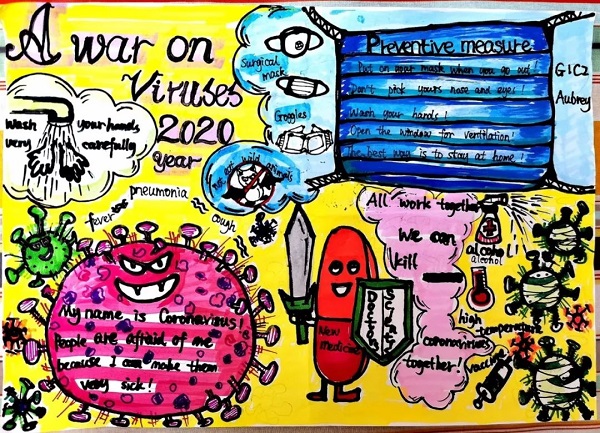 A war on
Viruses
2020
year
wash your hands
very carefully
Surgical
mask
Goggles
Not eat wild animals
Preventive measure
Put on your mask when you go out!
Don't pick yours nose and eyes!
Wash your hands!
Open the window for ventilation!
The best way is to stay at home!
G1C2
Aubrey
fever
pneumonia
cough
My name is Coronavirus!
People are afraid of me
because I can make them
very sick!
New
medicine
Doctor
Scientist
All work together
We can
kill
coronaviruses
together!
alcohol!
alcohol
high
temperature
vaccine